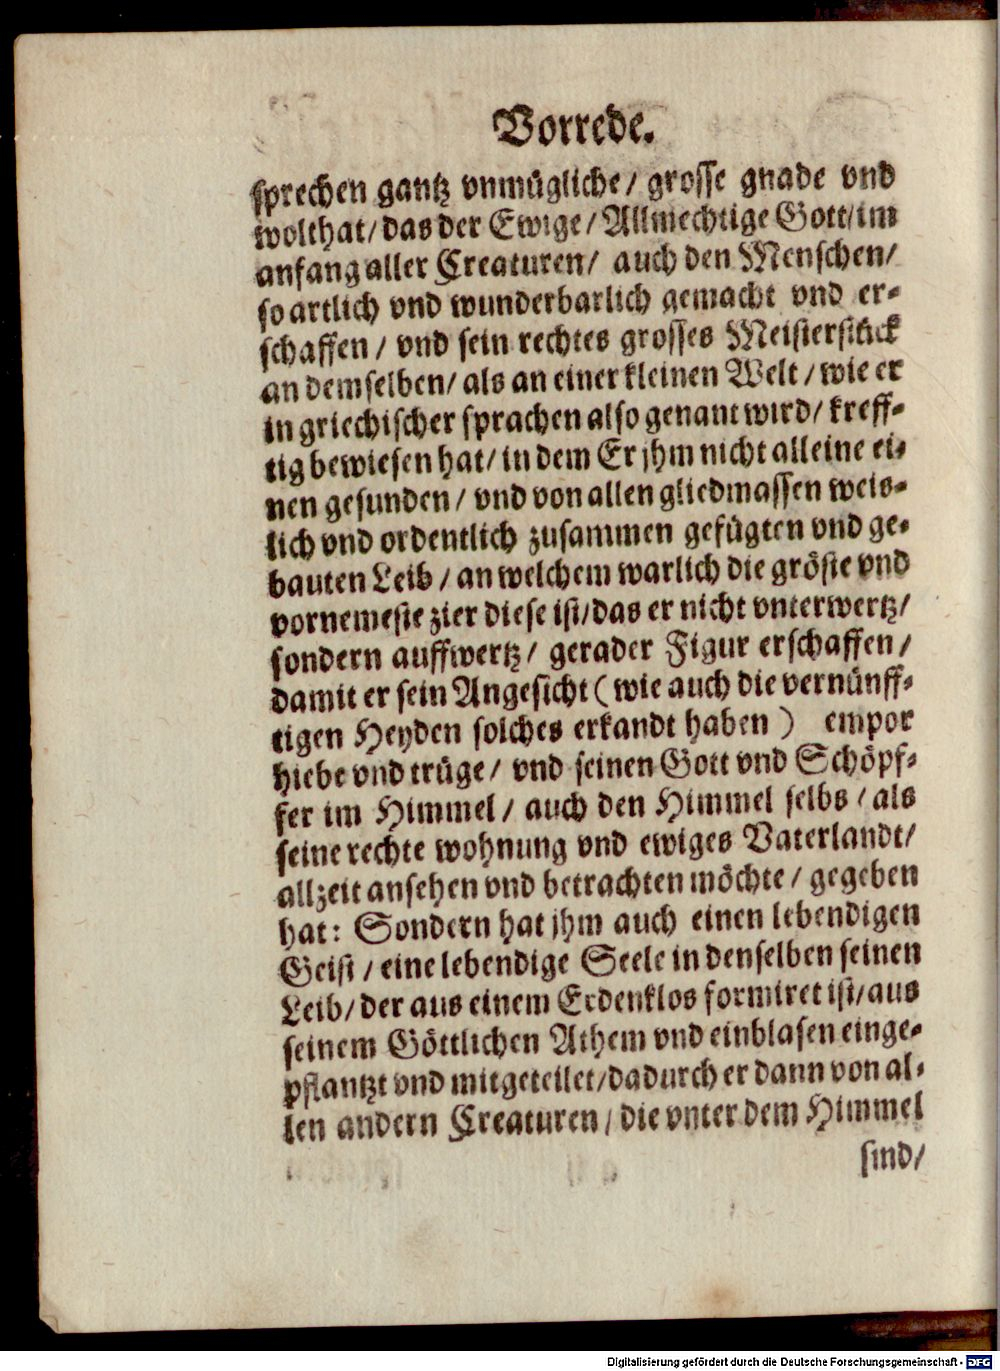 Vorrede.
sprechen gantz vnmügliche/ grosse gnade vnd
wolthat/ das der Ewige/ Allmechtige Gott/ im
anfang aller Creaturen/ auch den Menschen/
so artlich vnd wunderbarlich gemacht vnd er-
schaffen/ vnd sein rechtes grosses Meisterstück
an demselben/ als an einer kleinen Welt/ wie er
in griechischer sprachen also genant wird/ kreff-
tig bewiesen hat/ in dem Er jhm nicht alleine ei-
nen gesunden/ vnd von allen gliedmassen weis-
lich vnd ordentlich zusammen gefügten vnd ge-
bauten Leib/ an welchem warlich die gröste vnd
vornemeste zier diese ist/ das er nicht vnterwertz/
sondern auffwertz/ gerader Figur erschaffen/
damit er sein Angesicht (wie auch die vernünff-
tigen Heyden solches erkandt haben) empor
hiebe vnd trüge/ vnd seinen Gott vnd Schöpf-
fer im Himmel/ auch den Himmel selbs/ als
seine rechte wohnung vnd ewiges Vaterlandt/
allzeit ansehen vnd betrachten möchte/ gegeben
hat: Sondern hat jhm auch einen lebendigen
Geist/ eine lebendige Seele in denselben seinen
Leib/ der aus einem Erdenklos formiret ist/ aus
seinem Göttlichen Athem vnd einblasen einge-
pflantzt vnd mitgeteilet/ dadurch er dann von al-
len andern Creaturen/ die vnter dem Himmel
sind/
Digitalisierung gefördert durch die Deutsche Forschungsgemeinschaft - DFG